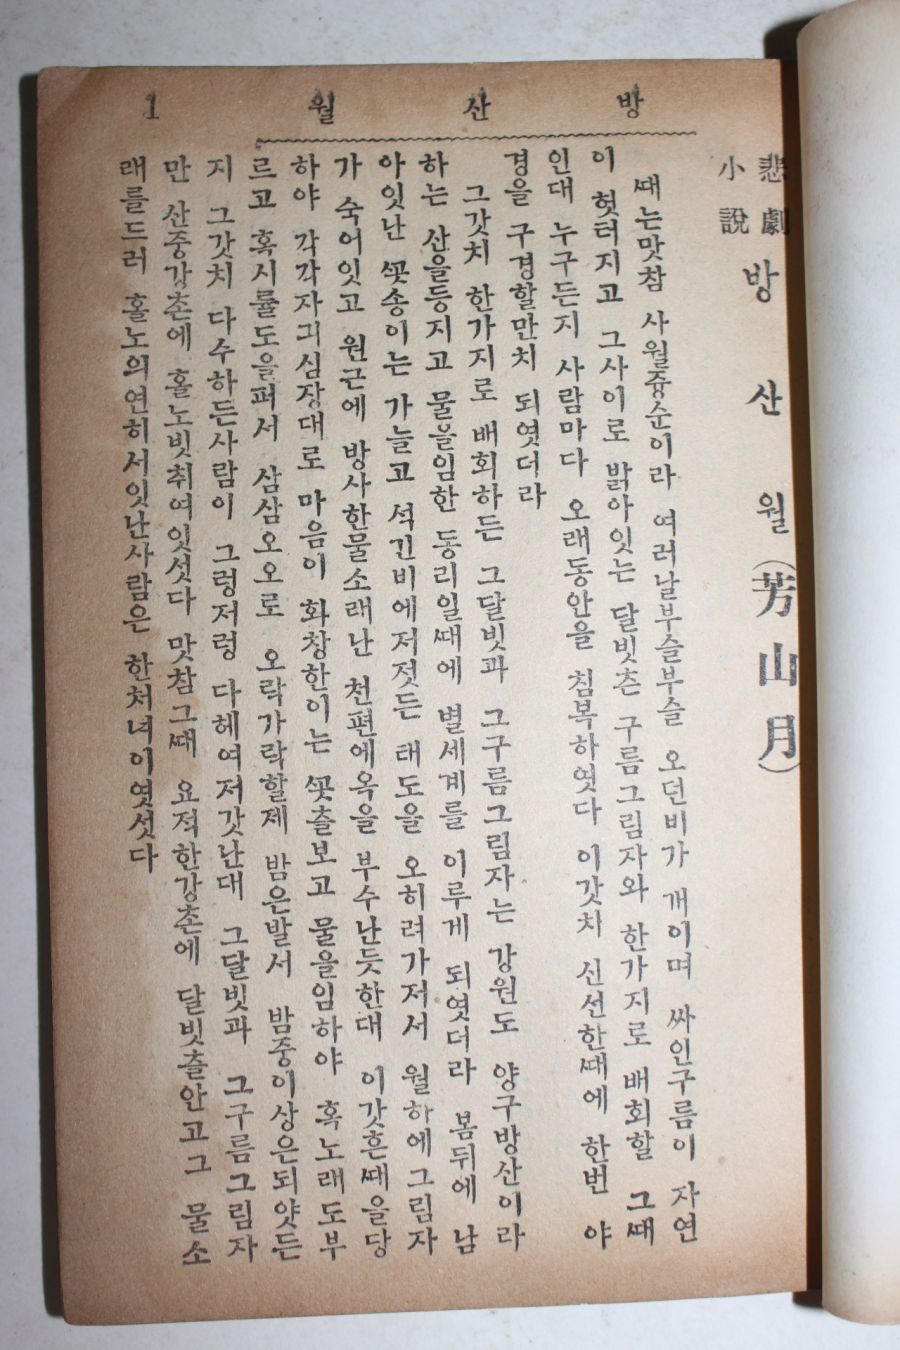 방산월 1
悲劇
小說
방산월(芳山月)
ᄯᅢ는맛참 사월쥼순이라 여러날부슬부슬 오던비가 개이며 싸인구름이 자연
이 헛터지고 그사이로 밝아잇는 달빗츤 구름그림자와 한가지로 배회할 그ᄯᅢ
인대 누구든지 사람마다 오래동안을 침복하엿다 이갓치 신선한ᄯᅢ에 한번 야
경을 구경할만치 되엿더라
그갓치 한가지로 배회하든 그달빗과 그구름그림자는 강원도 양구방산이라
하는 산을등지고 물을임한 동리일ᄯᅢ에 별세계를 이루게 되엿더라 봄뒤에 남
아잇난 ᄭᅩᆺ송이는 가늘고 석긴비에저젓든 태도을 오히려가저서 월하에그림자
가 숙어잇고 원근에 방사한물소래난 천편에옥을 부수난듯한대 이갓흔ᄯᅢ을당
하야 각각자긔심장대로 마음이 화창한이는 ᄭᅩᆺ츨보고 물을임하야 혹노래도부
르고 혹시률도을펴서 삼삼오오로 오락가락할제 밤은발서 밤중이상은되얏든
지 그갓치 다수하든사람이 그렁저렁 다헤여저갓난대 그달빗과 그구름그림자
만 산중강촌에 홀노빗취여잇섯다 맛참그ᄯᅢ 요적한강촌에 달빗츨안고그 물소
래를드러 홀노의연히서잇난사람은 한처녀이엿섯다